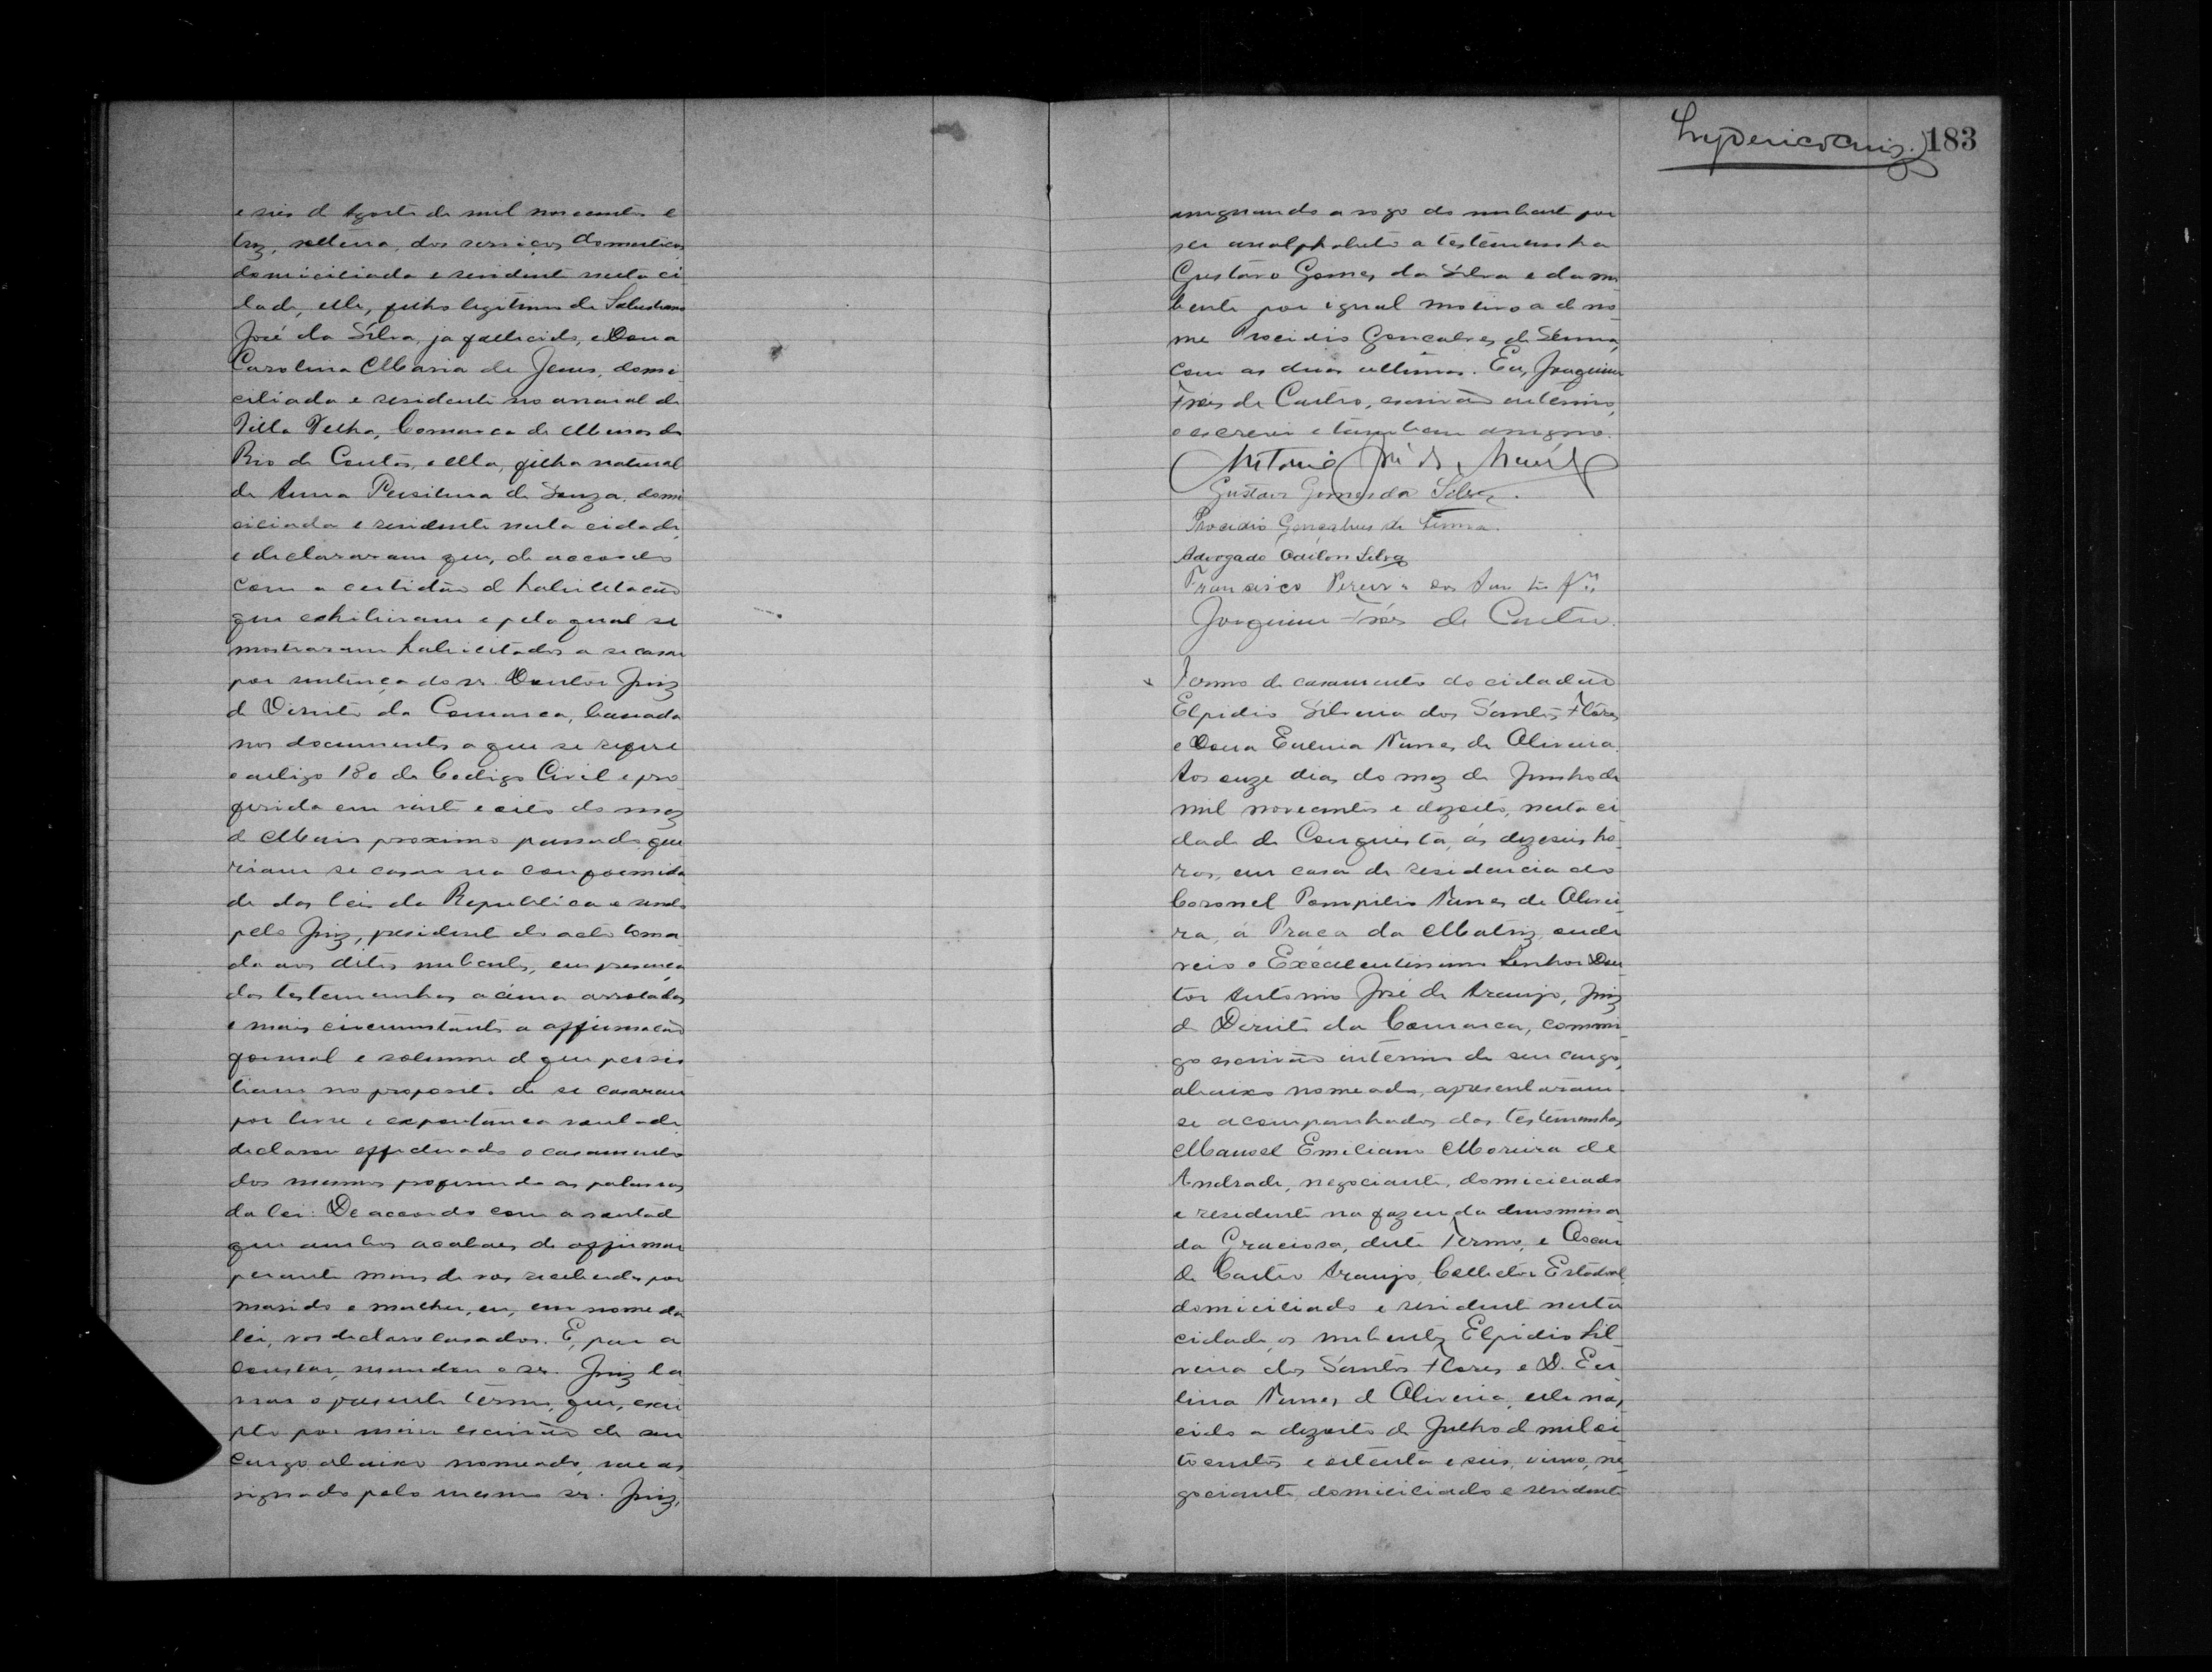 e seis d Agosto de mil novecentos e
trez, solteira, dos serviços domesticos
domiciliada e resident nesta ci
dade, elle, filho legitimo de Salustiano
José da Silva, ja fallecido, e Dona
Carolina Maria de Jesus, domi-
ciliada e residente no arraial de
Villa Velha, Comarca de Minas do
Rio de Contas, e ella, filha natural
de Anna Persilina de Souza, domi
ciliada e residente nesta cidade,
e declararam que, de accordo
com a certidão d habilitação
que exhibiram e pela qual se
mostraram habilitados a se casar
por sentença do sr. Doutor Juiz
d Direito da Comarca, baseada
nos documentos a que se refere
o artigo 180 do Codigo Civil e pro
ferida em vinte e oito do mez
d Maio proximo passado, que
riam se casar na conformida
de das leis da Republica e sendo
pelo Juiz, presidente do acto toma
da aos ditos nubentes, em presença
das testemunhas acima arroladas
e mais circumstantes a affirmação
formal e solemne d que persis
tiam no proposito de se casarem
por livre e expontanea vontade
declarou effectuado o casamento
dos mesmos proferindo as palavras
da lei: De accordo com a vontade
que ambos acabaes de affirmar
perante mim de vos receberdes por
marido e mulher, eu, em nome da
lei, vos declaro casados. E, para
constar, mandou o sr. Juiz la
vrar o presente termo, que, escri
pto por mim escrivão de seu
cargo abaixo nomeado, vae as
signado pelo mesmo sr. Juiz,
183
assignando a rogo do nubente por
ser analphabeto a testemunha
Gustavo Gomes da Silva e da nu
bente por igual motivo a de no
me Procidio Gonçalves de Senna,
com as duas ultimas. Eu, Joaquim
Fróes de Castro, escrivão interino,
o escrevi e tambem assigno.
Antonio José de Araújo
Gustavo Gomes da Silva.
Procidio Gonçalves de Senna.
Advogado Odilon Silva
Francisco Pereira dos Santos
Joaquim Fróes de Castro.
Termo de casamento do cidadão
Elpidio Silveira dos Santos Flores
e Dona Eulina Nunes de Oliveira.
Aos onze dias do mez de Junho de
mil novecentos e dezoito, nesta ci
dade de Conquista, ás dezeseis ho
ras, em casa de residencia do
Coronel Pompilio Nunes de Olivei-
ra, á Praça da Matriz, onde
veio o Excellentissimo Senhor Dou
tor Antonio José de Araujo, Juiz
d Direito da Comarca, commi
go escrivão interino de seu cargo,
abaixo nomeado, apresentaram-
se acompanhados das testemunhas
Manoel Emiliano Moreira de
Andrade, negociante, domiciliado
e residente na fazenda denomina
da Graciosa, deste Termo, e Oscar
de Castro Araujo, Collector Estadoal,
domiciliado e resident nesta
cidade, os nubentes Elpidio Sil
veira dos Santos Flores e D. Eu
lina Nunes d Oliveira, elle nas
cido a dezoito de Julho d mil oi
tocentos e setenta e seis, viuvo, ne
gociante, domiciliado e residente